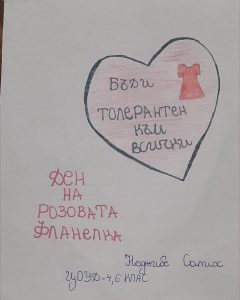 Бъди
толерантен
към
всички
Ден
на
розовата
фланелка
Неджибе Салих
ЦОУД-4, б клас